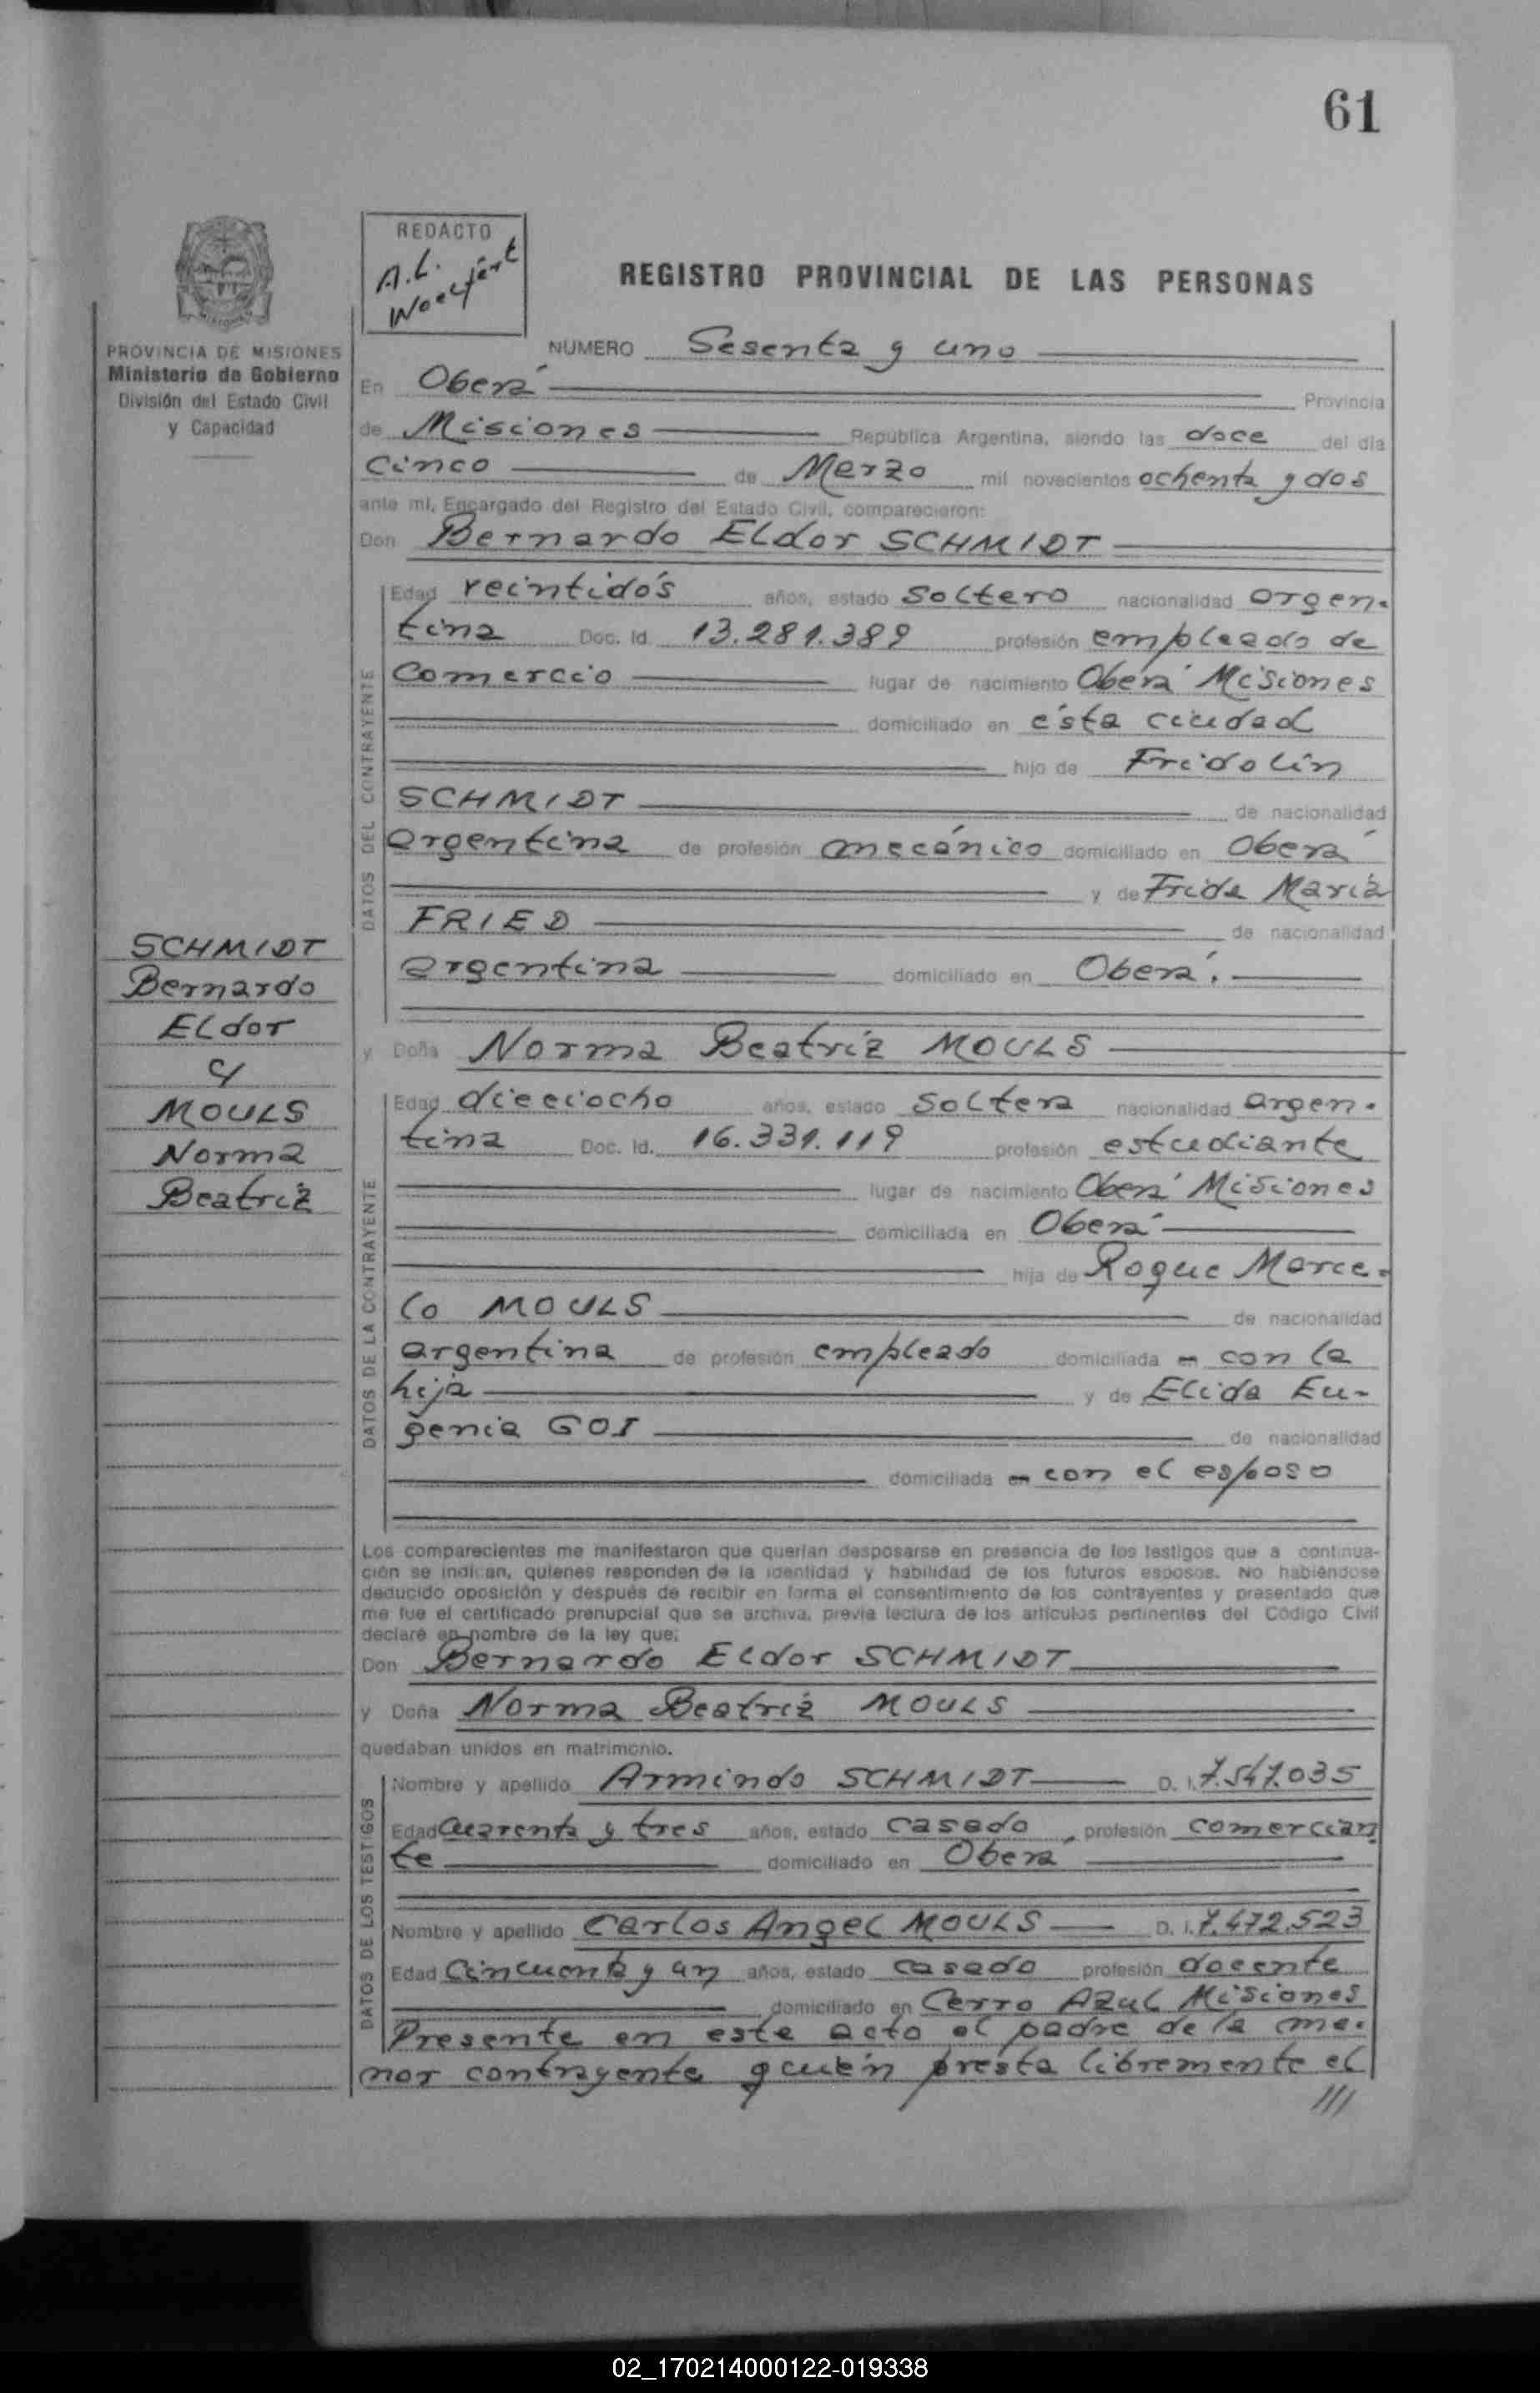 61
REDACTO
A.L.
REGISTRO PROVINCIAL DE LAS PERSONAS
PROVINCIA DE MISIONES
Ministerio de Gobierno
División del Estado Civil
y Capacidad
NUMERO Sesenta y uno
En Oberá Provincia
de Misiones República Argentina, siendo las doce del día
Cinco de Marzo mil novecientos ochenta y dos
ante mí, Encargado del Registro del Estado Civil, comparecieron:
Don Bernardo Eldor SCHMIDT
DATOS DEL CONTRAYENTE
Edad veintidós años, estado soltero nacionalidad argen-
tina Doc. Id. 13.281.389 profesión empleado de
Comercio lugar de nacimiento Oberá Misiones
domiciliado en ésta ciudad
hijo de Fridolin
SCHMIDT de nacionalidad
argentina de profesión mecánico domiciliado en Oberá
y de Frida María
FRIED de nacionalidad
argentina domiciliado en Oberá.
SCHMIDT
Bernardo
Eldor
y
MOULS
Norma
Beatriz
y Doña Norma Beatriz MOULS
DATOS DE LA CONTRAYENTE
Edad dieciocho años, estado soltera nacionalidad argen-
tina Doc. Id. 16.331.119 profesión estudiante
lugar de nacimiento Oberá Misiones
domiciliada en Oberá
hija de Roque Marce-
lo MOULS de nacionalidad
argentina de profesión empleado domiciliada con la
hija y de Elida Eu-
genia GOI de nacionalidad
domiciliada en con el esposo
Los comparecientes me manifestaron que querían desposarse en presencia de los testigos que a continua-
ción se indican, quienes responden de la identidad y habilidad de los futuros esposos. No habiéndose
deducido oposición y después de recibir en forma el consentimiento de los contrayentes y presentado que
me fue el certificado prenupcial que se archiva, previa lectura de los artículos pertinentes del Código Civil
declaré en nombre de la ley que:
Don Bernardo Eldor SCHMIDT
y Doña Norma Beatriz MOULS
quedaban unidos en matrimonio.
DATOS DE LOS TESTIGOS
Nombre y apellido Armindo SCHMIDT D. I. 7.547.035
Edad Cuarenta y tres años, estado casado, profesión comercian
te domiciliado en Oberá
Nombre y apellido Carlos Angel MOULS D. I. 7.472.523
Edad Cincuenta y un años, estado casado profesión docente
domiciliado en Cerro Azul Misiones
Presente en este acto el padre de la me-
nor contrayente quién presta libremente el
///
02_170214000122-019338